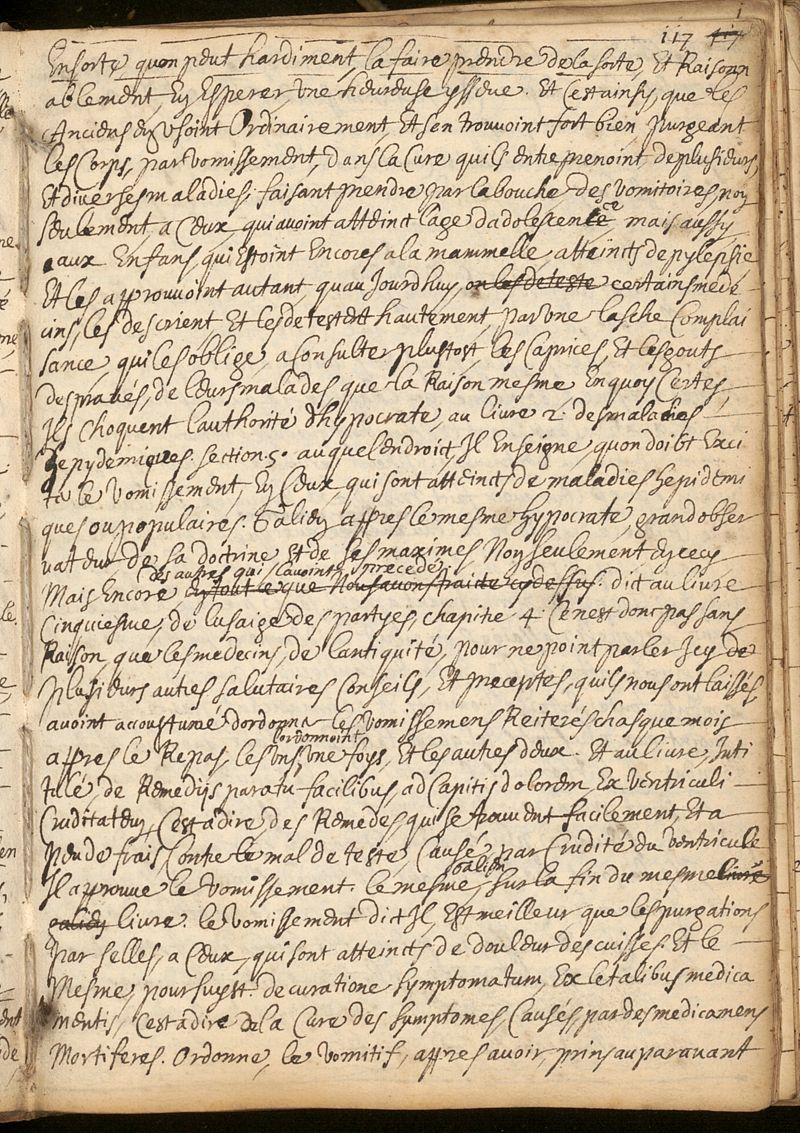 1
117 417
Ensorte, quon peut hardiment, la faire prendre de la sorte, Et Raisonn
ablement, En Esperer, une heureuse yssue. Et Cest ainsy, que les
Anciens en usoint Ordinairement, Et sen trouvoint fort bien purgeant
les Corps, par vomissement, dans la Cure quils entreprenoint de plusieurs
Et diverses maladies; faisant prendre par la bouche, des vomitoires, non
seulement, a Ceux, qui avoint atteinct lage dadolescence, mais aussy
aux Enfans, qui Estoint Encores a la mammelle, atteincts depylepsie
Et les approuvoint autant, quau Jourdhuy, on les deteste certains mede
cins, les descrient Et les detestent hautement, par une lasche Complai
sance, qui les oblige, a Consulter plustost, les Caprices, Et les gouts
despravés, de leurs malades que la Raison mesme En quoy Certes,
Ils Choquent l'authorité dhypocrate, au livre 2. des maladies
Epydemiques. section 5. auquel Endroict, Il Enseigne, quon doibt Exci
ter le vomissement, En Ceux qui sont atteincts de maladies hepidemi
ques ou populaires. Galien appres le mesme hypocrate, grand obser
vateur de sa doctrine Et de ses maximes, Non seulement En cecy
des autres qui lavoint precede
Mais Encore En tout ce que Nous avons traicte cy dessus. dict au livre
Cinquiesme, de lusaige des partyes, chapitre 4. Ce nest donc pas sans
Raison, que les medecins, de lantiquité, pour ne point parler Icy de
plusieurs autres salutaires Conseils, Et preceptes, quils nous ont laissés,
avoint accoustumé dordonner les vomissemens Reiterés chasque mois
lordonnoint
appres le Repas les uns, une foys, Et les autres deux. Et au livre, Inti
tulé, de Remediis paratu facilibus, ad Capitis dolorem, Ex ventriculi
Cruditatem, Cest a dire, des Remedes, qui se trouvent facilement, Et a
peu de frais, Contre le mal de teste, Causé, par Crudité du ventricule
Galien
Il approuve le vomissement. le mesme, sur la fin du mesme livre
galien livre. le vomissement dict Il, Est meilleur que les purgations
par selles, a Ceux, qui sont atteincts de douleur des cuisses. Et le
Mesme, poursuyt. de curatione symptomatum, Ex letalibus medica
mentis, Cest a dire de la Cure des symptomes, Causés, par des medicamens
Mortiferes. Ordonne, le vomitif, appres avoir, prins auparavant